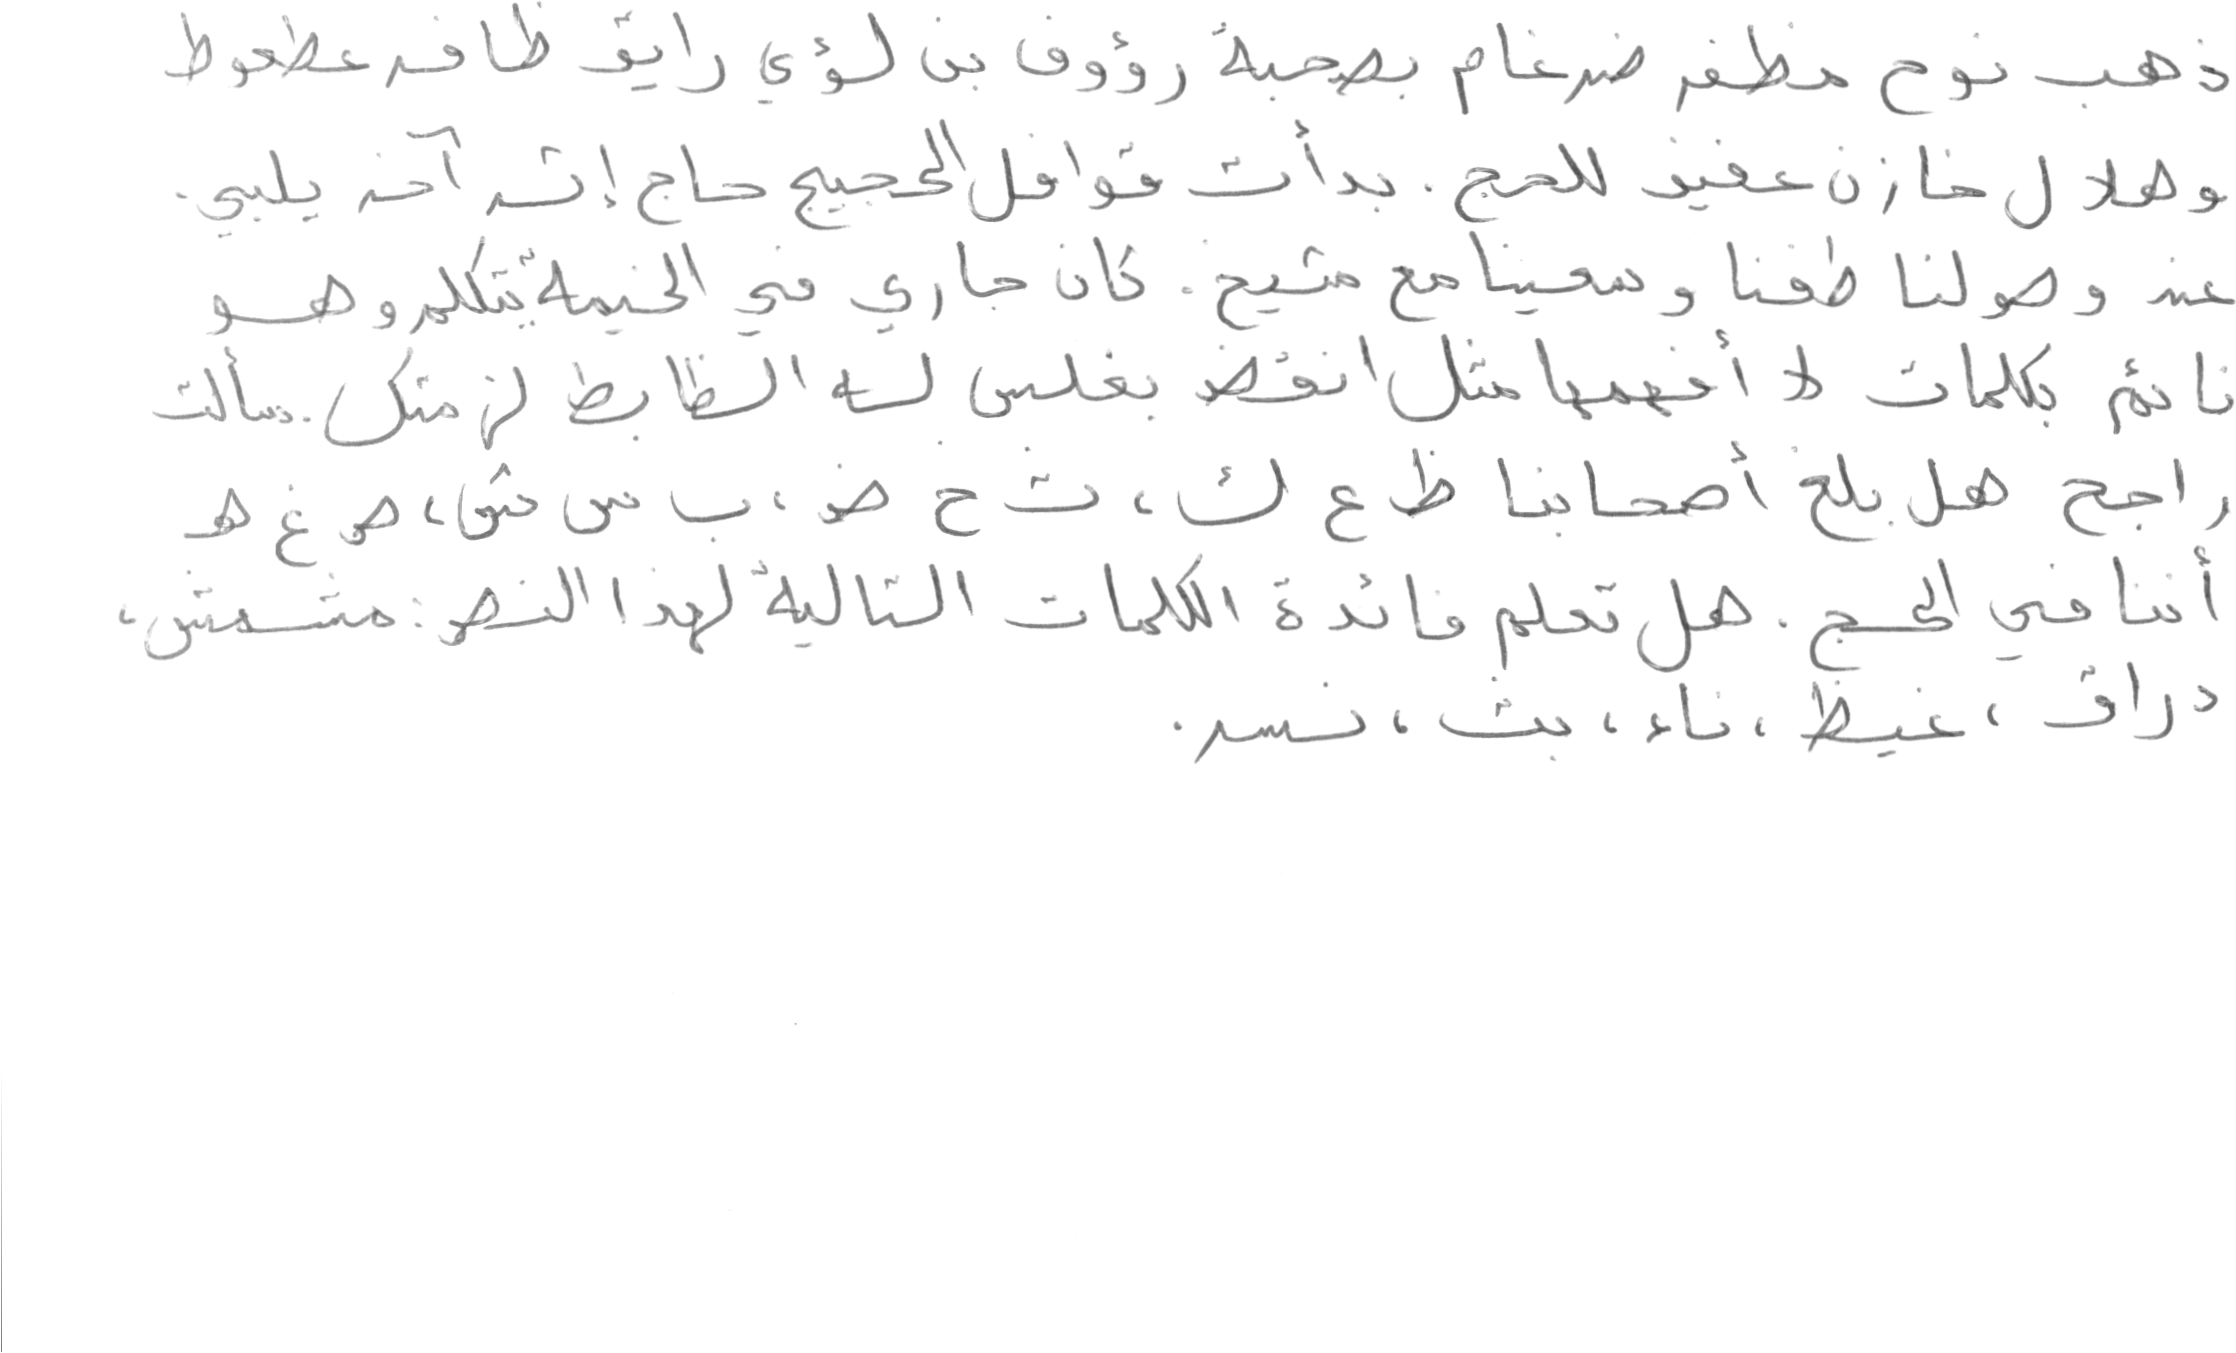 ذهب نوح مظفر ضرغام بصحبة رؤوف بن لؤي رايق ظافر عطعوط
وهلال خازن عفيف للحج. بدأت قوافل الحجيج حاج إثر آخر يلبي.
عند وصولنا طفنا وسعينا مع شيخ. كان جاري في الخيمة يتكلم وهو
نائم بكلمات لا أفهمها مثل انقض بغلس له الظابط متكل. سألت
راجح هل بلغ أصحابنا ظ ع ك، ث خ ض، ب س ش، ص غ هـ
أننا في الحج. هل تعلم فائدة الكلمات التالية لهذا النص: مشمش،
دراق، غيظ، ناء، بث، نسر.